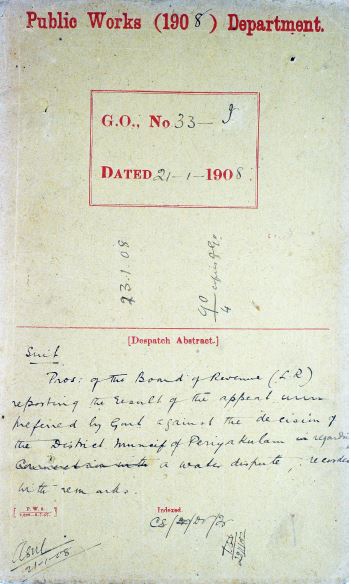 Public Works (1908) Department.
G.O., No 33— I
DATED 21-1-1908.
23.1.08
[Despatch Abstract.]
Suit
Pros: of the Board of Revenue (L.R)
reporting the result of the appeal
preferred by Govt against the decision of
the District Munsif of Periyakulam in regard
a water dispute, recorded
with remarks.
Indexed.
21-1-08